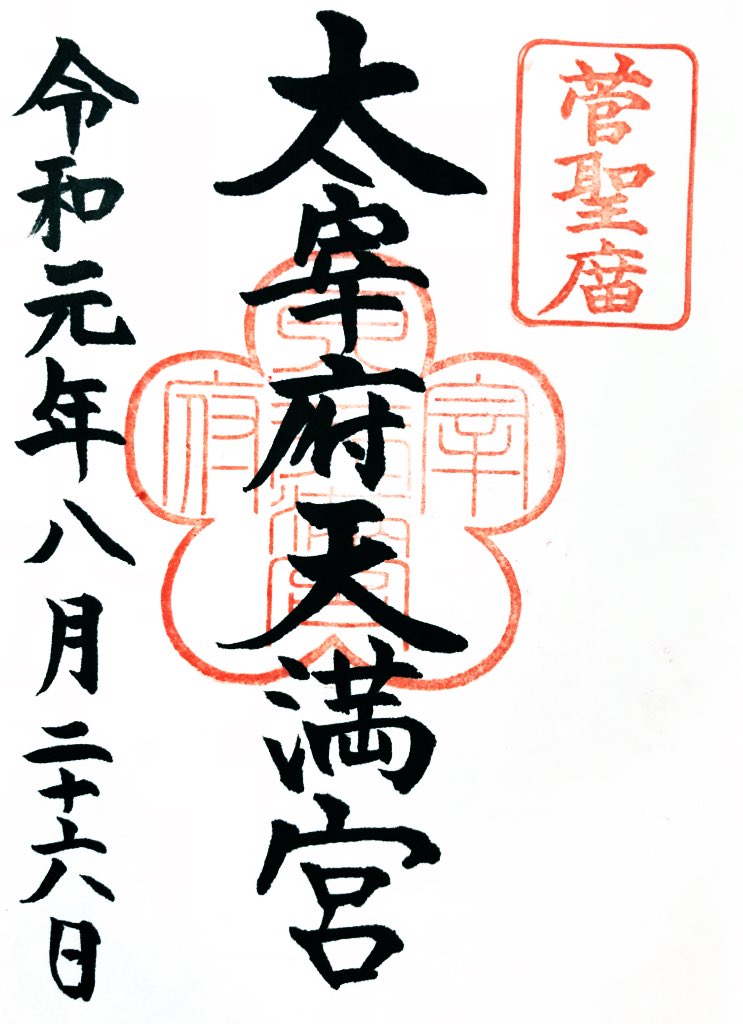 菅聖庿
太宰府天満宮
宰
府
令和元年八月二十六日